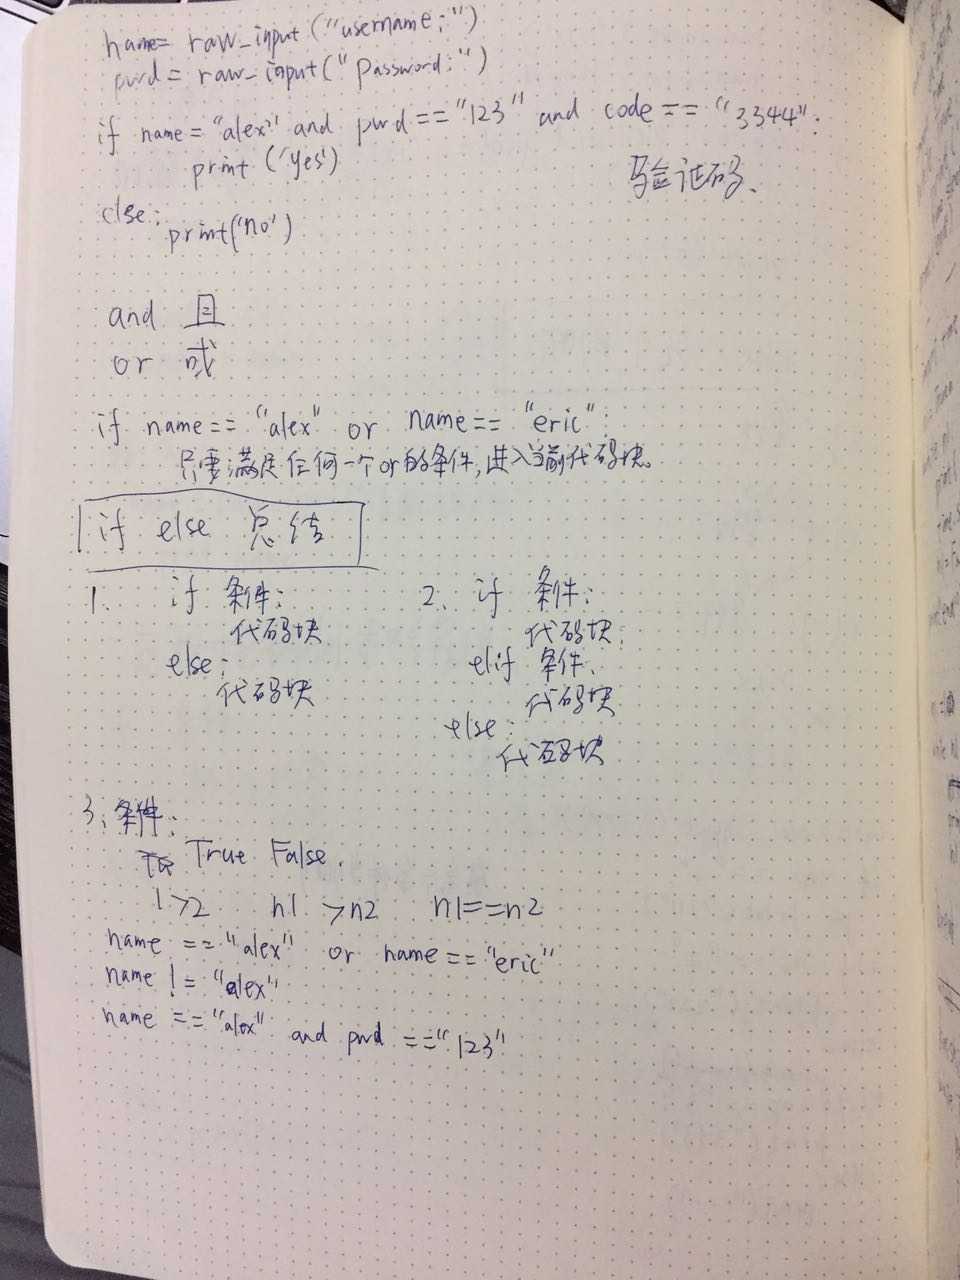 name= raw_input ("username:")
pwd = raw_input("Password:")
if name = "alex" and pwd == "123" and code == "3344":
print ('yes')
验证码、
else:
print('no')
and 且
or 或
if name == "alex" or name == "eric":
只要满足任何一个or的条件,进入当前代码块。
if else 总结
1. if 条件:
代码块
else:
代码块
2. if 条件:
代码块:
elif 条件、
代码块
else:
代码块
3、条件:
True False.
1>2 n1 >n2 n1==n2
name == "alex" or name == "eric"
name != "alex"
name == "alex" and pwd == "123"